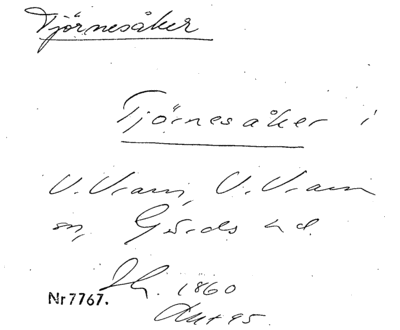 Tjörnesåker
Tjörnesåker i
V. Vram, V. Vram
sn, Gärds hd.
Jh. 1860
Nr 7767.
Akt 95.